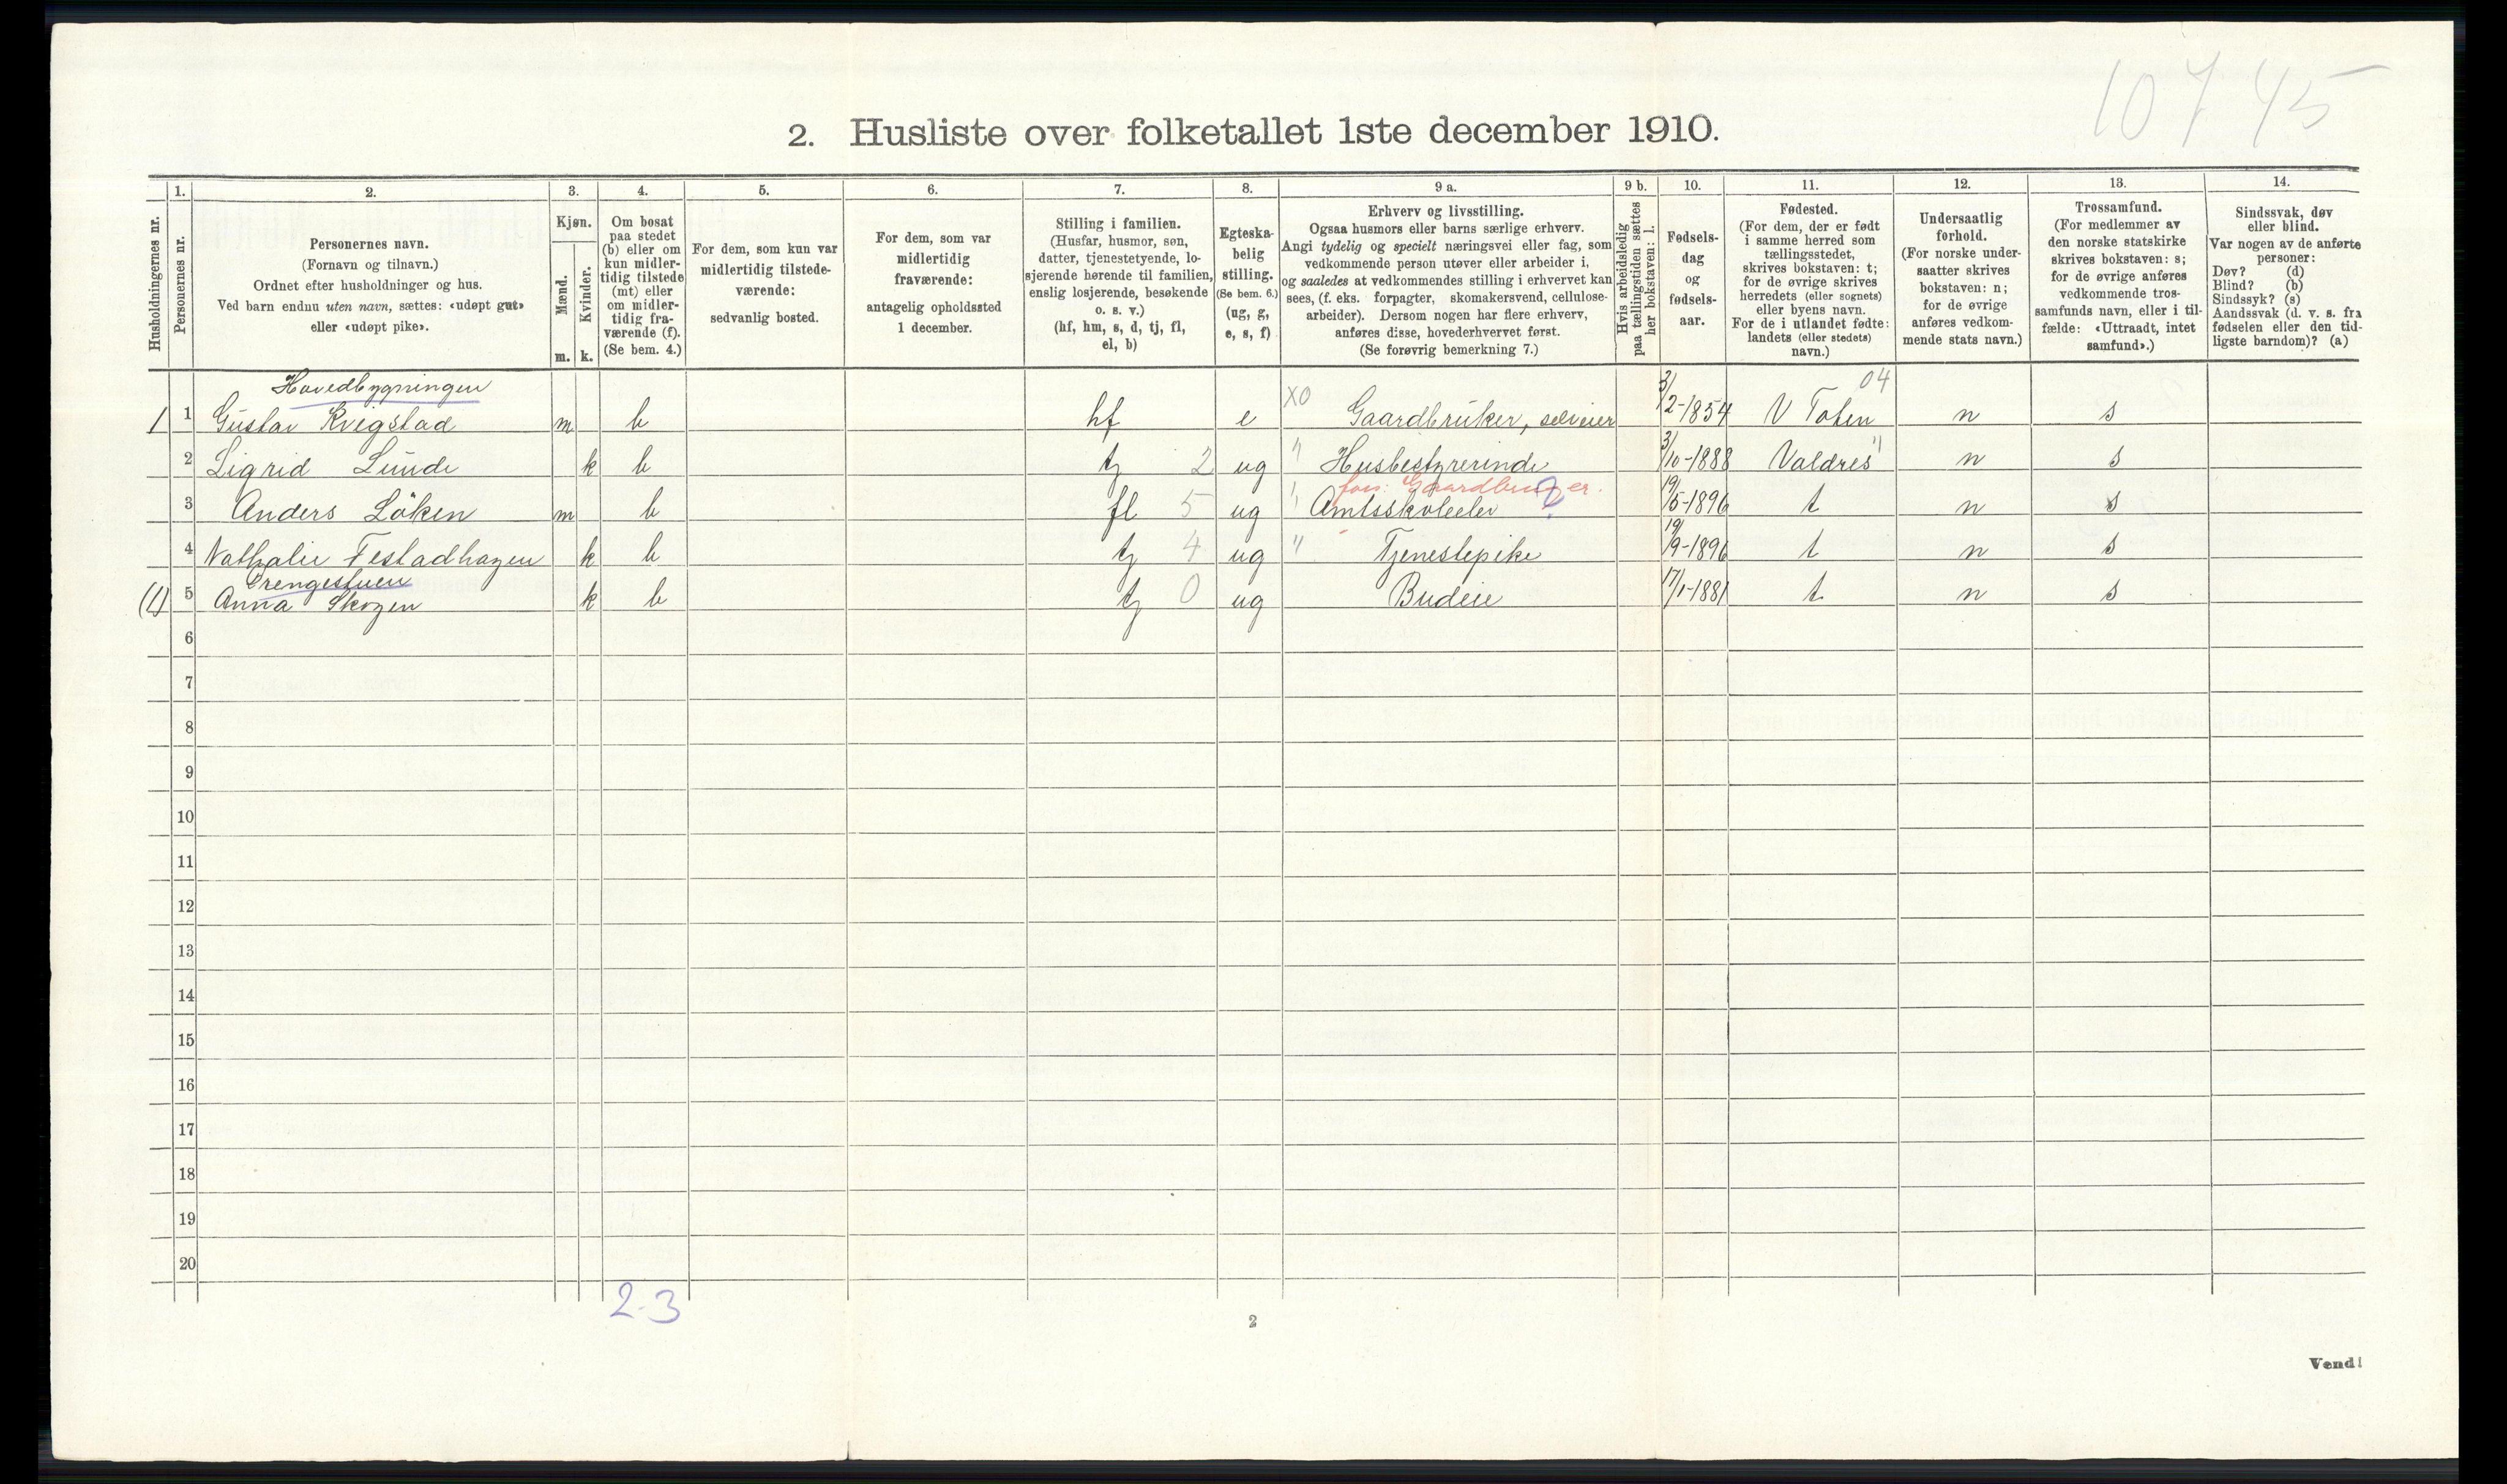 10745
2. Husliste over folketallet 1ste december 1910.
Husholdningernes nr.
1. Personernes nr.
2. Personernes navn.
(Fornavn og tilnavn.)
Ordnet efter husholdninger og hus.
Ved barn endnu uten navn, sættes: «udøpt gut»
eller «udøpt pike».
3. Kjøn.
Mænd. m.
Kvinder. k.
4. Om bosat
paa stedet
(b) eller om
kun midler-
tidig tilstede
(mt) eller
om midler-
tidig fra-
værende (f).
(Se bem. 4.)
5. For dem, som kun var
midlertidig tilstede-
værende:
sedvanlig bosted.
6. For dem, som var
midlertidig
fraværende:
antagelig opholdssted
1 december.
7. Stilling i familien.
(Husfar, husmor, søn,
datter, tjenestetyende, lo-
sjerende hørende til familien,
enslig losjerende, besøkende
o. s. v.)
(hf, hm, s, d, tj, fl,
el, b)
8. Egteska-
belig
stilling.
(Se bem. 6.)
(ug, g,
e, s, f)
9 a. Erhverv og livsstilling.
Ogsaa husmors eller barns særlige erhverv.
Angi tydelig og specielt næringsvei eller fag, som
vedkommende person utøver eller arbeider i,
og saaledes at vedkommendes stilling i erhvervet kan
sees, (f. eks. forpagter, skomakersvend, cellulose-
arbeider). Dersom nogen har flere erhverv,
anføres disse, hovederhvervet først.
(Se forøvrig bemerkning 7.)
9 b. Hvis arbeidsledig
paa tællingstiden sættes
her bokstaven: l.
10. Fødsels-
dag
og
fødsels-
aar.
11. Fødested.
(For dem, der er født
i samme herred som
tællingsstedet,
skrives bokstaven: t;
for de øvrige skrives
herredets (eller sognets)
eller byens navn.
For de i utlandet fødte:
landets (eller stedets)
navn.)
12. Undersaatlig
forhold.
(For norske under-
saatter skrives
bokstaven: n;
for de øvrige
anføres vedkom-
mende stats navn.)
13. Trossamfund.
(For medlemmer av
den norske statskirke
skrives bokstaven: s;
for de øvrige anføres
vedkommende tros-
samfunds navn, eller i til-
fælde: «Uttraadt, intet
samfund».)
14. Sindssvak, døv
eller blind.
Var nogen av de anførte
personer:
Døv? (d)
Blind? (b)
Sindssyk? (s)
Aandssvak (d. v. s. fra
fødselen eller den tid-
ligste barndom)? (a)
Hovedbygningen 04
1 1 Gustav Kvigstad m b hf e X0 Gaardbruker, selveier 3/2-1854 V Toten n s
2 Sigrid Lunde k b tj 2 ug " Husbestyrerinde 3/10-1888 Valdres " n s
fors: Gaardbruger.
3 Anders Löken m b fl 5 ug " Amtsskoleelev ? 19/5-1896 t n s
4 Nathalie Festadhagen k b tj 4 ug " Tjenestepike 19/9-1896 t n s
Drengestuen
(1) 5 Anna Skogen k b tj 0 ug Budeie 17/1-1881 t n s
6
7
8
9
10
11
12
13
14
15
16
17
18
19
20
2-3
2
Vend!